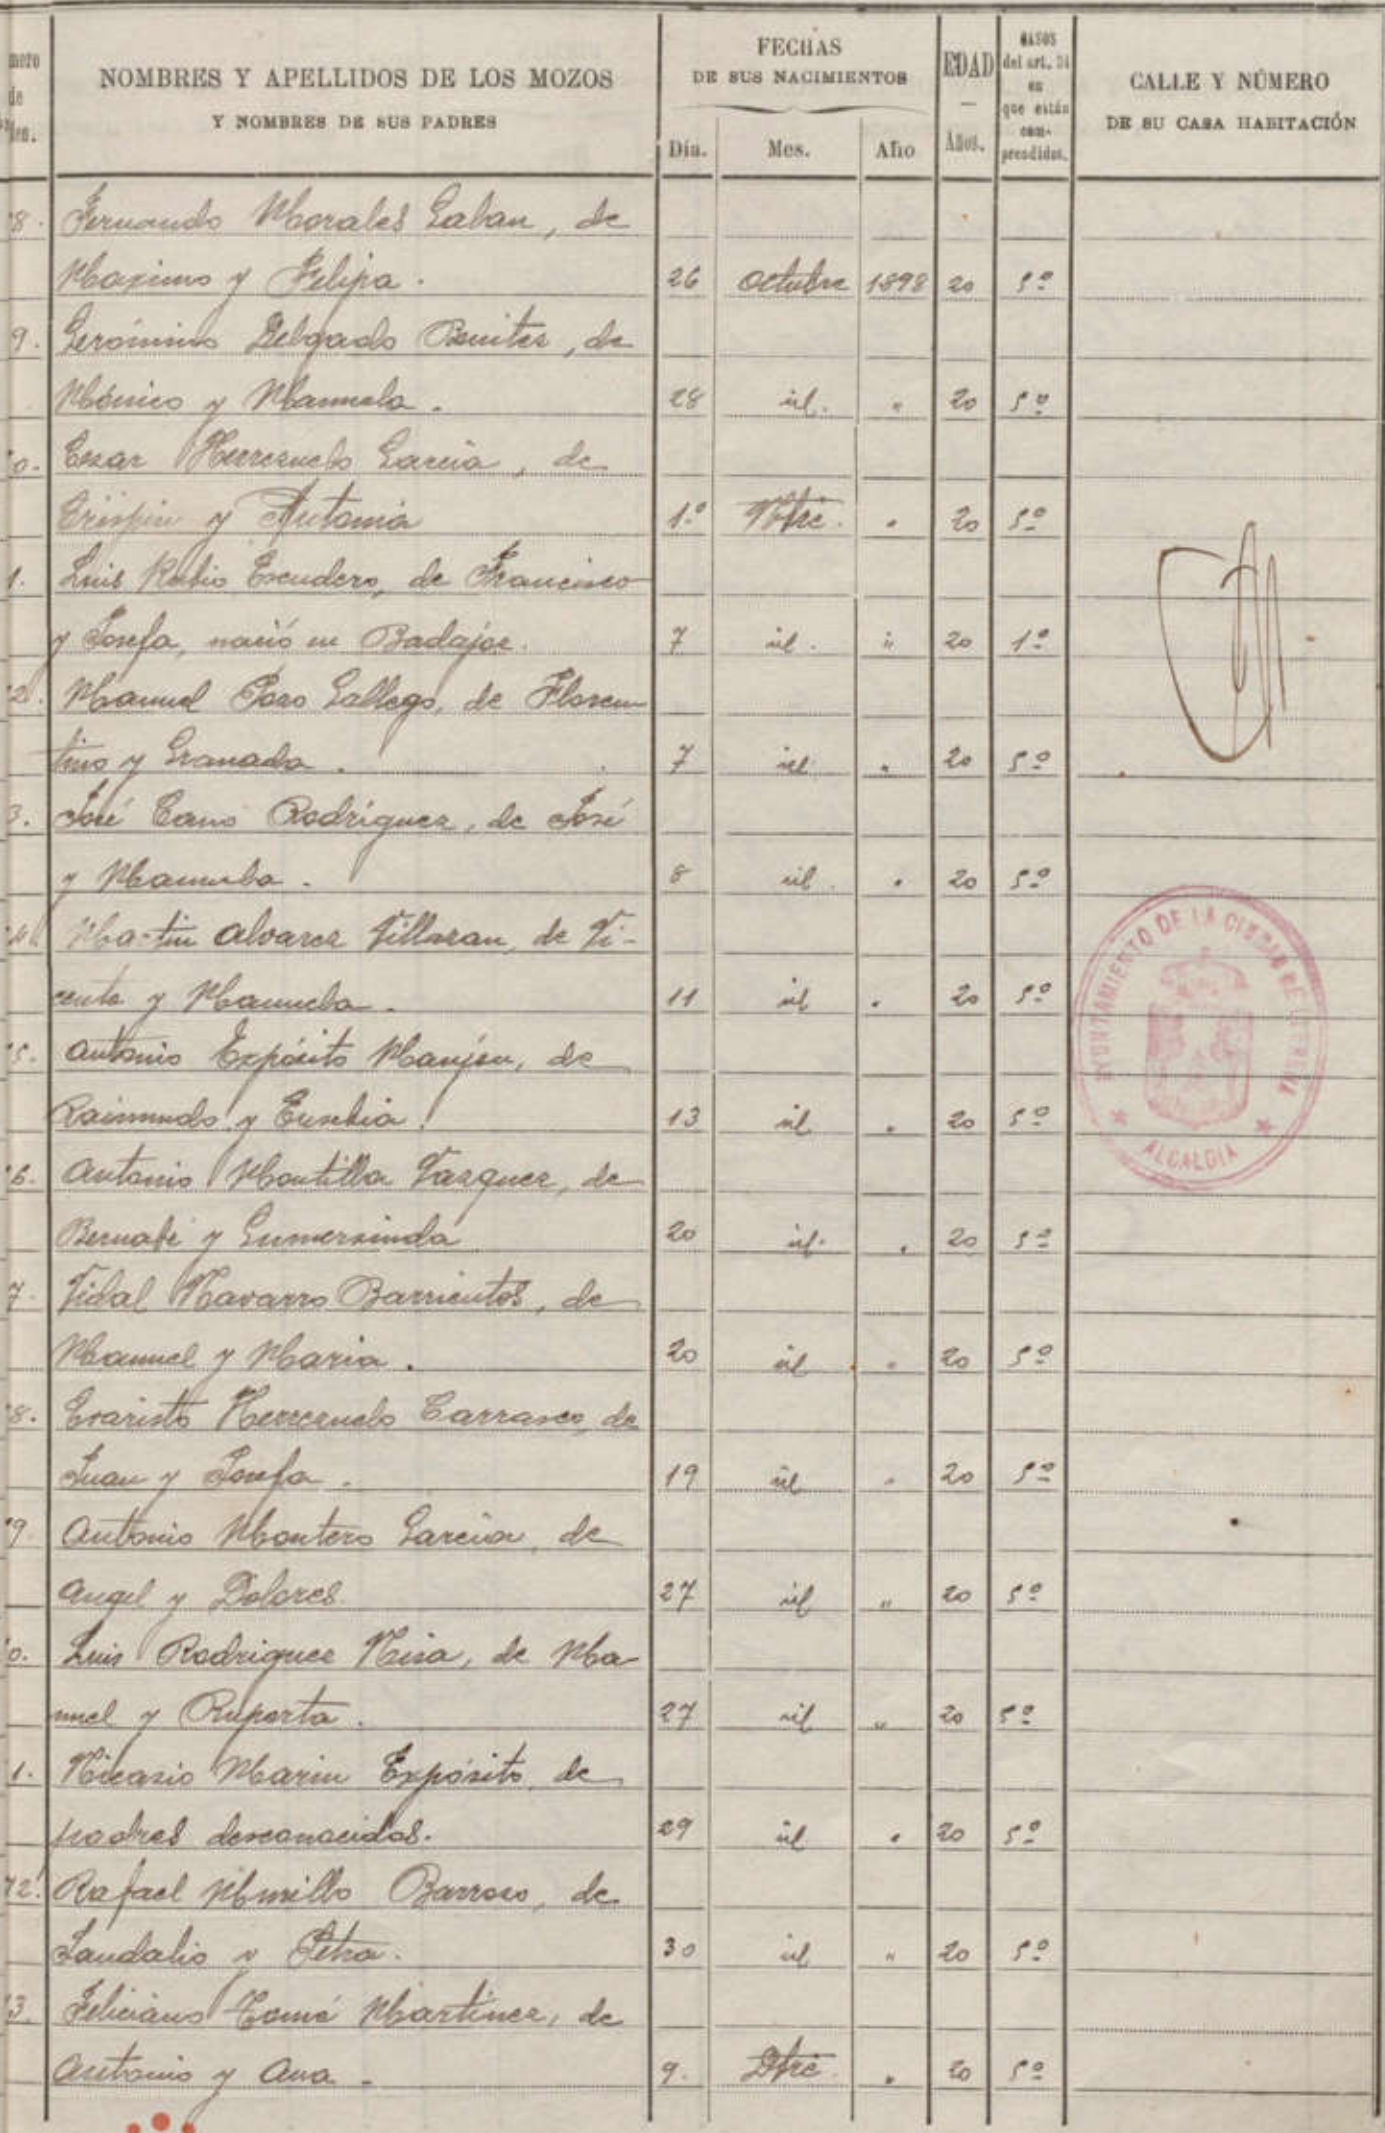 NOMBRES Y APELLIDOS DE LOS MOZOS
Y NOMBRES DE SUS PADRES
FECHAS
DE SUS NACIMIENTOS
Día. Mes. Año
EDAD
—
Años.
CASOS
del art. 34
en
que están
com-
prendidos.
CALLE Y NÚMERO
DE SU CASA HABITACIÓN
8. Fernando Morales Galvan, de
Maximo y Felipa. 26 Octubre 1898 20 5º
9. Gerónimo Delgado Benites, de
Mónico y Manuela. 28 id. " 20 5º
0. Cesar Herrezuelo Garcia, de
Crispin y Antonia 1.º Nbre. " 20 5º
1. Luis Rubio Escudero, de Francisco
y Josefa, nació en Badajoz. 7 id. " 20 1º
2. Manuel Pozo Gallego, de Floren
tino y Granada. 7 id. " 20 5º
3. José Cano Rodriguez, de José
y Manuela. 8 id. " 20 5º
4. Martin Alvarez Villaran, de Vi-
cente y Manuela. 11 id " 20 5º
5. Antonio Expósito Manjon, de
Raimundo y Eusebia. 13 id. " 20 5º
6. Antonio Montilla Vazquez, de
Bernabé y Gumersinda 20 id. " 20 5º
7. Vidal Navarro Barrientos, de
Manuel y Maria. 20 id " 20 5º
8. Evaristo Herrezuelo Carrasco, de
Juan y Josefa. 19 id " 20 5º
9 Antonio Montero Garcia, de
Angel y Dolores. 27 id " 20 5º
0. Luis Rodriguez Nisa, de Ma
nuel y Ruperta. 27 id " 20 5º
1. Nicasio Marin Expósito, de
padres desconocidos. 29 id " 20 5º
72. Rafael Murillo Barroso, de
Sandalio y Petra. 30 id " 20 5º
3. Feliciano Tomé Martinez, de
Antonio y Ana. 9. Dbre. " 20 5º
AYUNTAMIENTO DE LA CIUDAD DE LLERENA
ALCALDIA